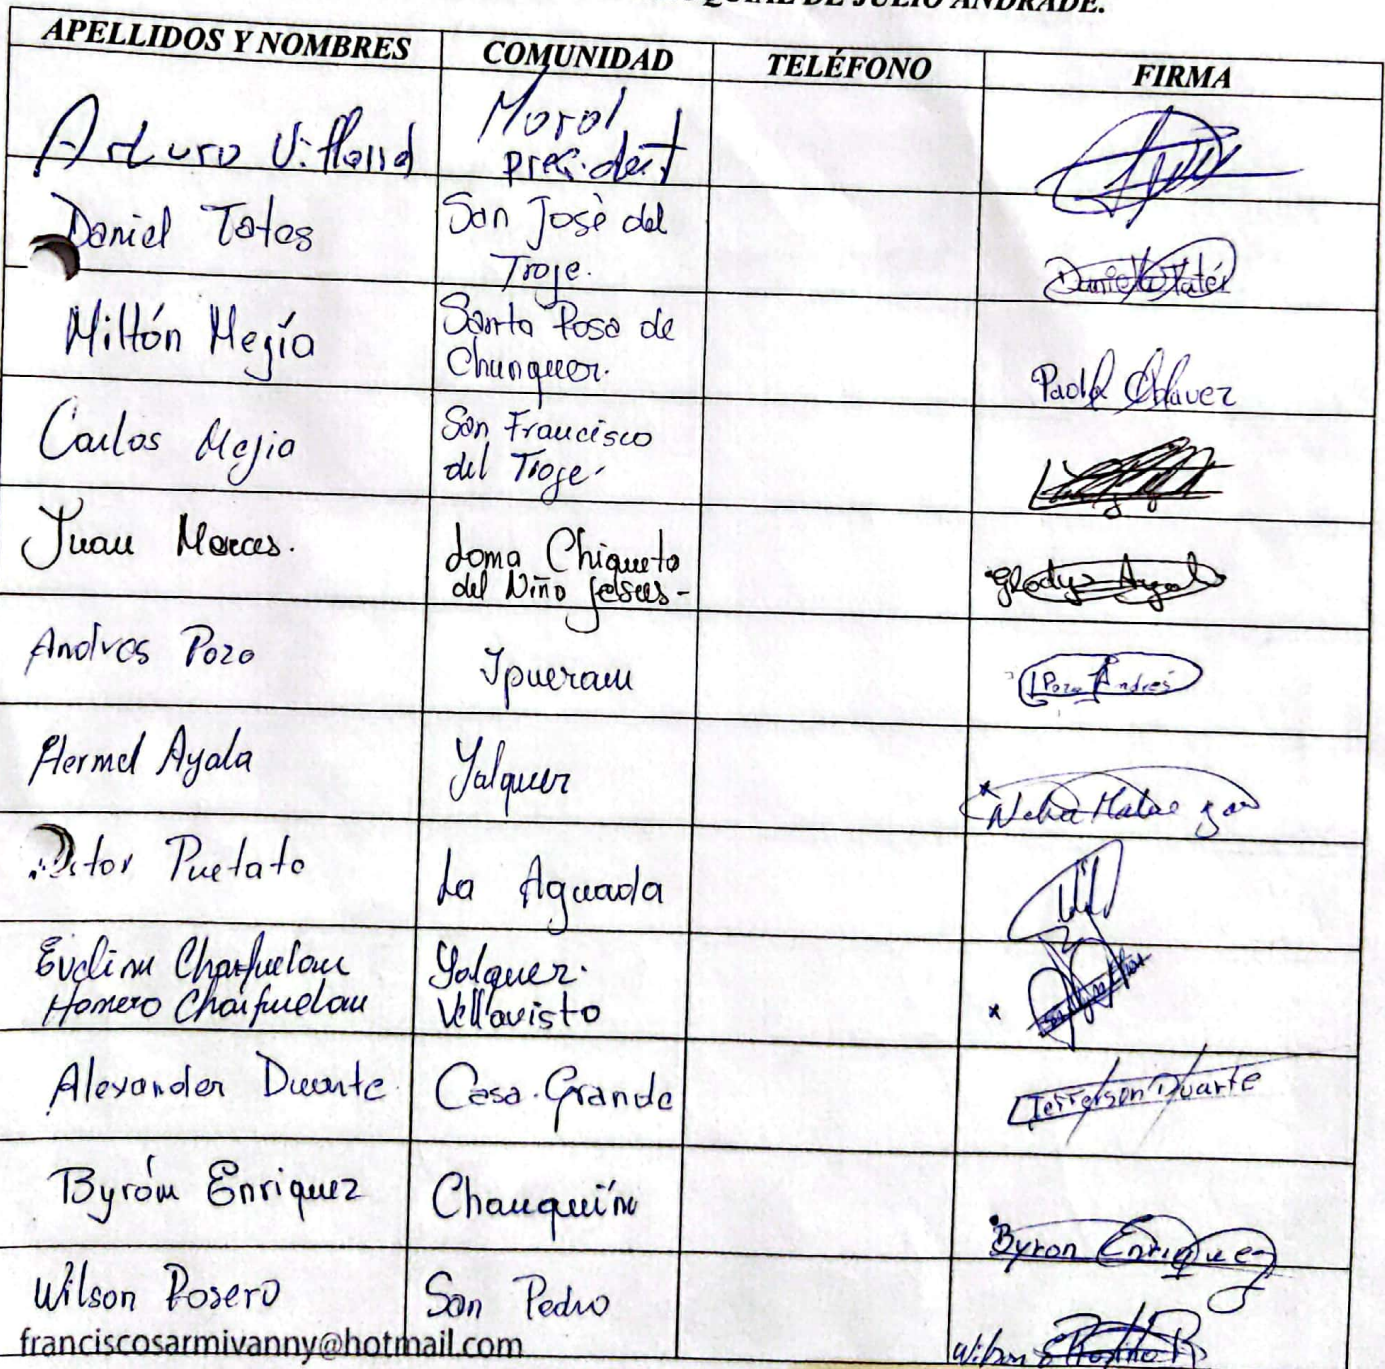 DE JULIO ANDRADE.
APELLIDOS Y NOMBRES COMUNIDAD TELÉFONO FIRMA
Arturo Moral
president
Daniel Tates San José del
Troje. Daniel Tatés
Miltón Mejía Santa Rosa de
Chunquer. Paola Chavez
Carlos Mejia San Francisco
del Troje
Juan Loma Chiquita
del Niño Jesus - Gladys Ayala
Andres Pozo Ipueran Pozo Andres
Hermel Ayala Yalquer
Puetate La Aguada
Evelin Charfuelan Yalquer.
Homero Charfuelan Vellavista
Alexander Duarte Casa Grande Jefferson Duarte
Byrón Enriquez Chauquin Byron Enriquez
Wilson Rosero San Pedro Wilson
franciscosarmivanny@hotmail.com